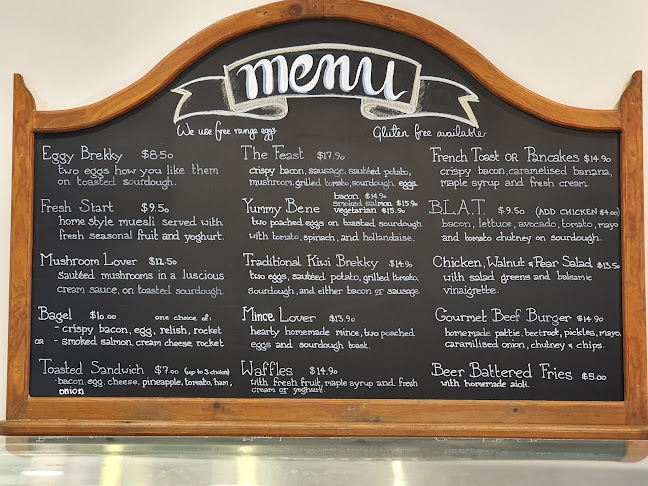 menu
We use free range eggs
Gluten free available
Eggy Brekky $8.50
two eggs how you like them
on toasted sourdough.
Fresh Start $9.50
home style muesli served with
fresh seasonal fruit and yoghurt.
Mushroom Lover $12.50
sautéed mushrooms in a luscious
cream sauce, on toasted sourdough.
Bagel $10.00 one choice of:
- crispy bacon, egg, relish, rocket
OR - smoked salmon, cream cheese, rocket
Toasted Sandwich $7.00 (up to 3 choices)
- bacon, egg, cheese, pineapple, tomato, ham,
onion
The Feast $17.90
crispy bacon, sausage, sautéed potato,
mushroom, grilled tomato, sourdough, eggs
Yummy Bene bacon $14.90
smoked salmon $15.90
vegetarian $13.90
two poached eggs on toasted sourdough
with tomato, spinach, and hollandaise.
Traditional Kiwi Brekky $14.90
two eggs, sautéed potato, grilled tomato,
sourdough, and either bacon or sausage.
Mince Lover $13.90
hearty homemade mince, two poached
eggs and sourdough toast.
Waffles $14.90
with fresh fruit, maple syrup and fresh
cream or yoghurt.
French Toast OR Pancakes $14.90
crispy bacon, caramelised banana,
maple syrup and fresh cream
B.L.A.T. $9.50 (ADD CHICKEN $4.00)
bacon, lettuce, avocado, tomato, mayo
and tomato chutney on sourdough.
Chicken, Walnut & Pear Salad $13.50
with salad greens and balsamic
vinaigrette.
Gourmet Beef Burger $14.90
homemade pattie, beetroot, pickles, mayo,
caramilised onion, chutney & chips.
Beer Battered Fries $5.00
with homemade aioli.